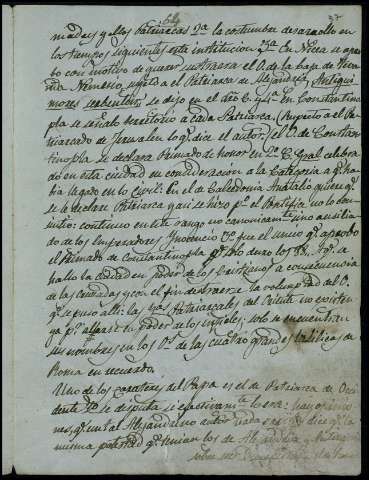 37
madas y ellos Patriarcas 2ª la costumbre desarrollo en
los tiempos siguientes esta institucion 3ª En Nicea se apro
bo con motivo de querer sustraerse el O. de la baja de
sugeto a el Patriarca de Alejandria, Antiqui
mores serbentur se dijo en el año 6. y 4ª En Constantino
pla se señalo territorio a cada Patriarca. (Respecto a el Pa
triarcado de Jerusalen lo q. dice el autor) el O. de Constan
tinopla se declara Primado de honor en 2º C. Gral celebra
do en esta ciudad en consideracion a la Categoria q. ha
bia llegado en lo Civil: En el de Calcedonia Anatolio quiere q.
se le declare Patriarca y asi se hizo p.º el Pontifice no lo con
sintio: continuo en este rango no canonicam.te sino ausilia
do de los Emperadores Ynocencio 3º fue el unico q. aprobo
el Primado de Constantinopla
hallo la ciudad en poder de los Latinos a consecuencia
de las cruzadas y con el fin de atraerse la voluntad del O.
q. se puso alli: las Patriarcales del Oriente no existen
ya p.º al poder de los infieles: solo se encuentran
sus nombres en los O.s de las cuatro grandes Basilicas de
Roma en recuerdo.
Uno de los caracteres del Papa es el de Patriarca de Occi
dente se disputa si efectivam.te lo era: hay opinio
nes, q. un tal Alejandrino autor dice q. la
misma potestad q. tenian los de Alejandria y
sobre sus